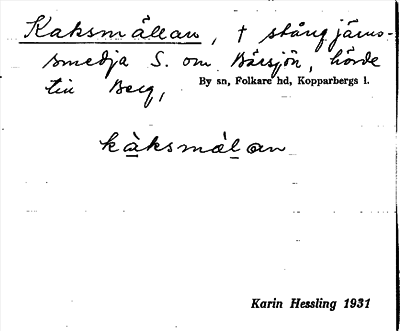 Kaksmällan, † stångjärns-
smedja S. om Bårsjön, hörde
till Berg,
By sn, Folkare hd, Kopparbergs l.
kàksmálan
Karin Hessling 1931